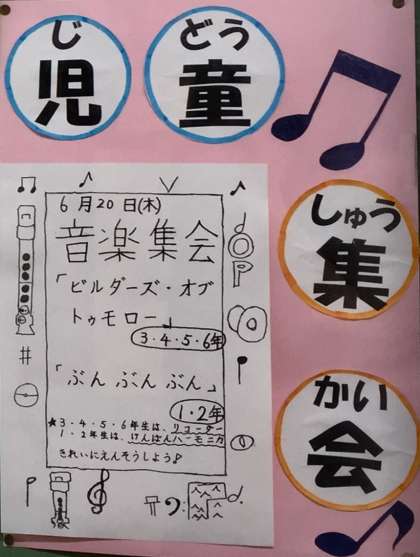 じ どう
児 童
しゅう
集
かい
会
6月20日(木)
音楽集会
「ビルダーズ・オブ
トゥモロー」
3・4・5・6年
「ぶん ぶん ぶん」
1・2年
★3・4・5・6年生は、リコーダー
1・2年生は、けんばんハーモニカ
きれいにえんそうしよう♪